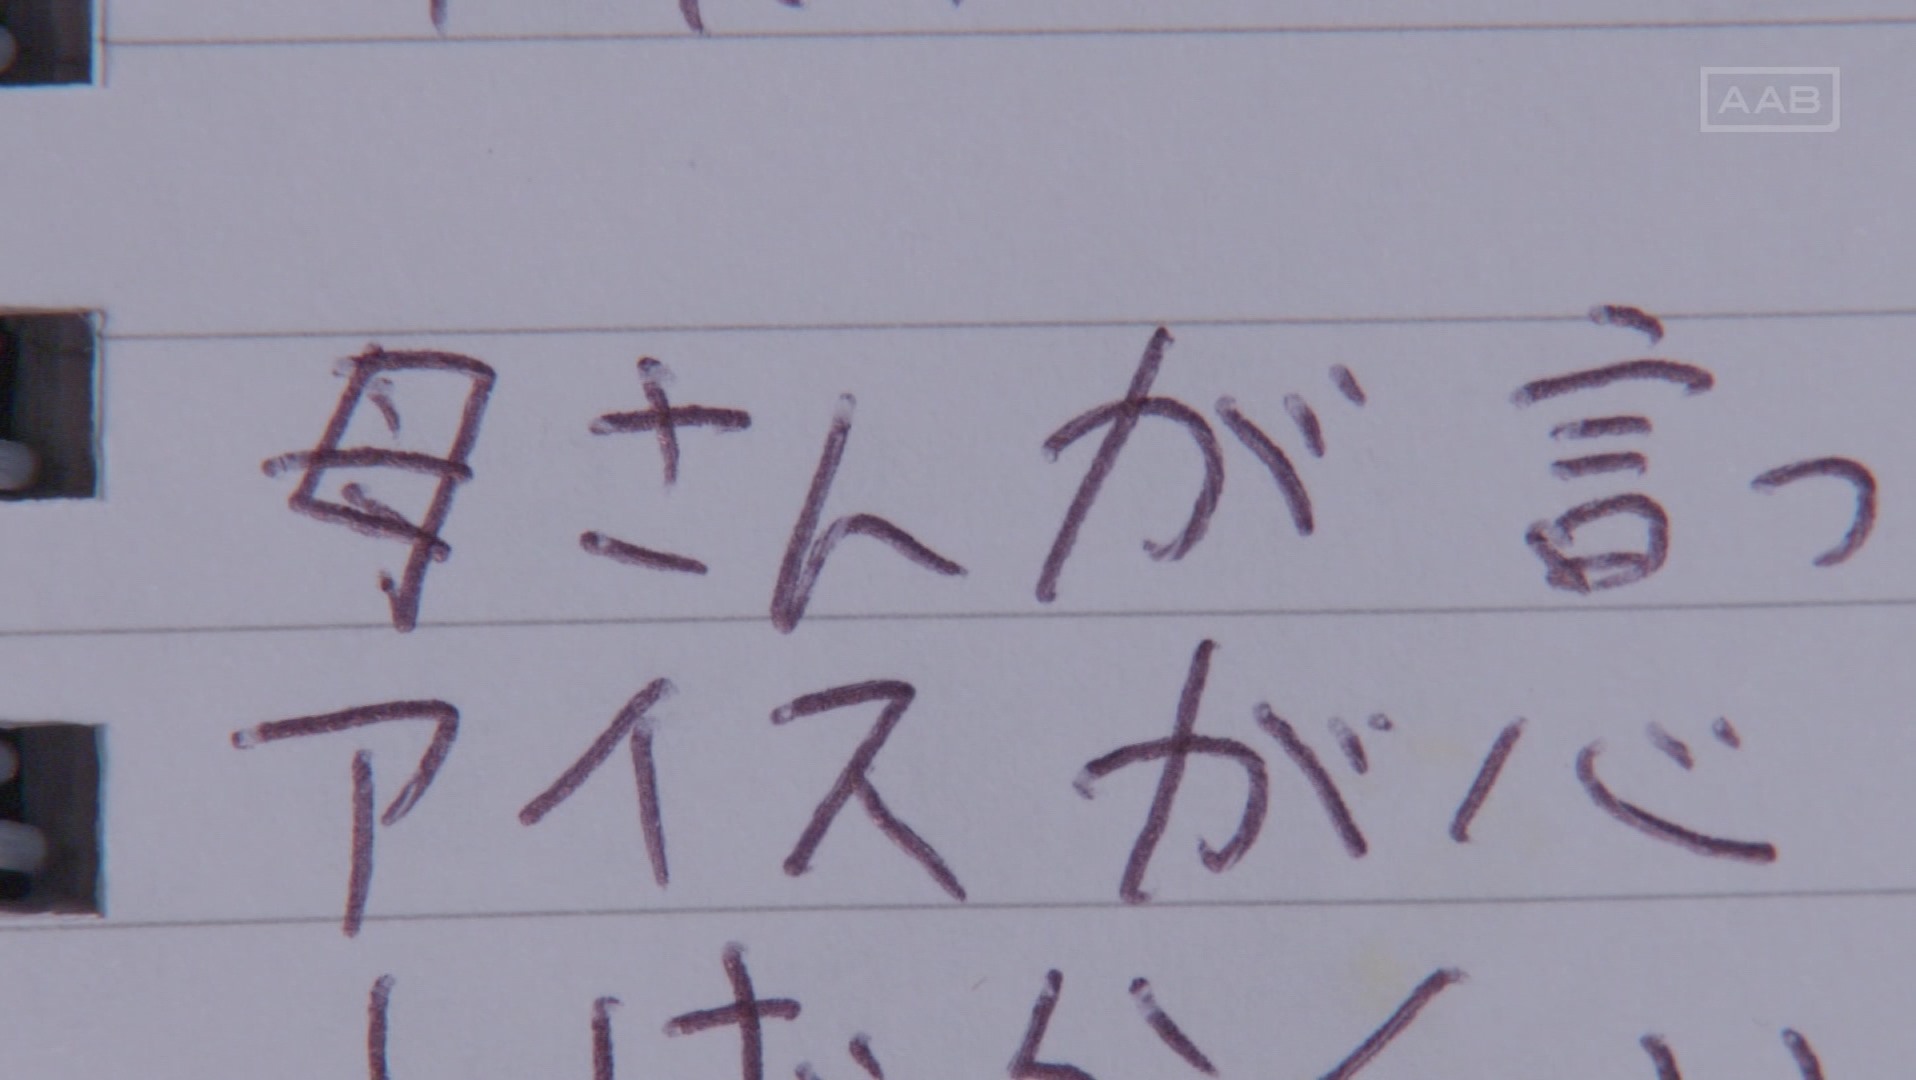 AAB
母さんが言っ
アイスが心